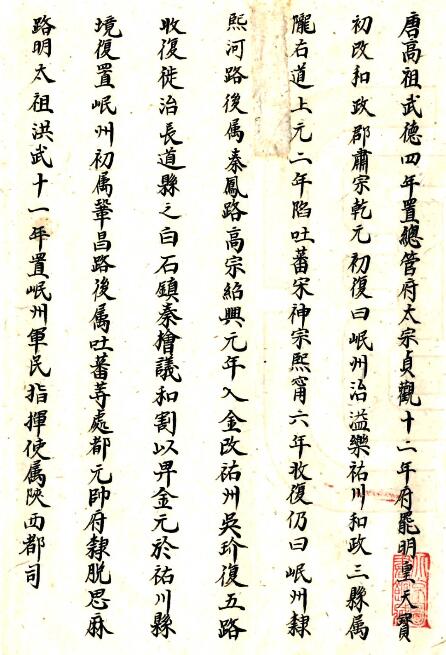 唐高祖武德四年置總管府太宗貞觀十二年府罷明皇天寶
初改和政郡肅宗乾元初復曰岷州治溢樂祐川和政三縣属
隴右道上元二年陷吐蕃宋神宗熙甯六年收復仍曰岷州隸
熙河路後属秦鳳路高宗紹興元年入金改祐州吳玠復五路
收復徙治長道縣之白石鎮秦檜議和割以畀金元於祐川縣
境復置岷州初属鞏昌路後属吐蕃等處都元帥府隸脱思麻
路明太祖洪武十一年置岷州軍民指揮使属陝西都司